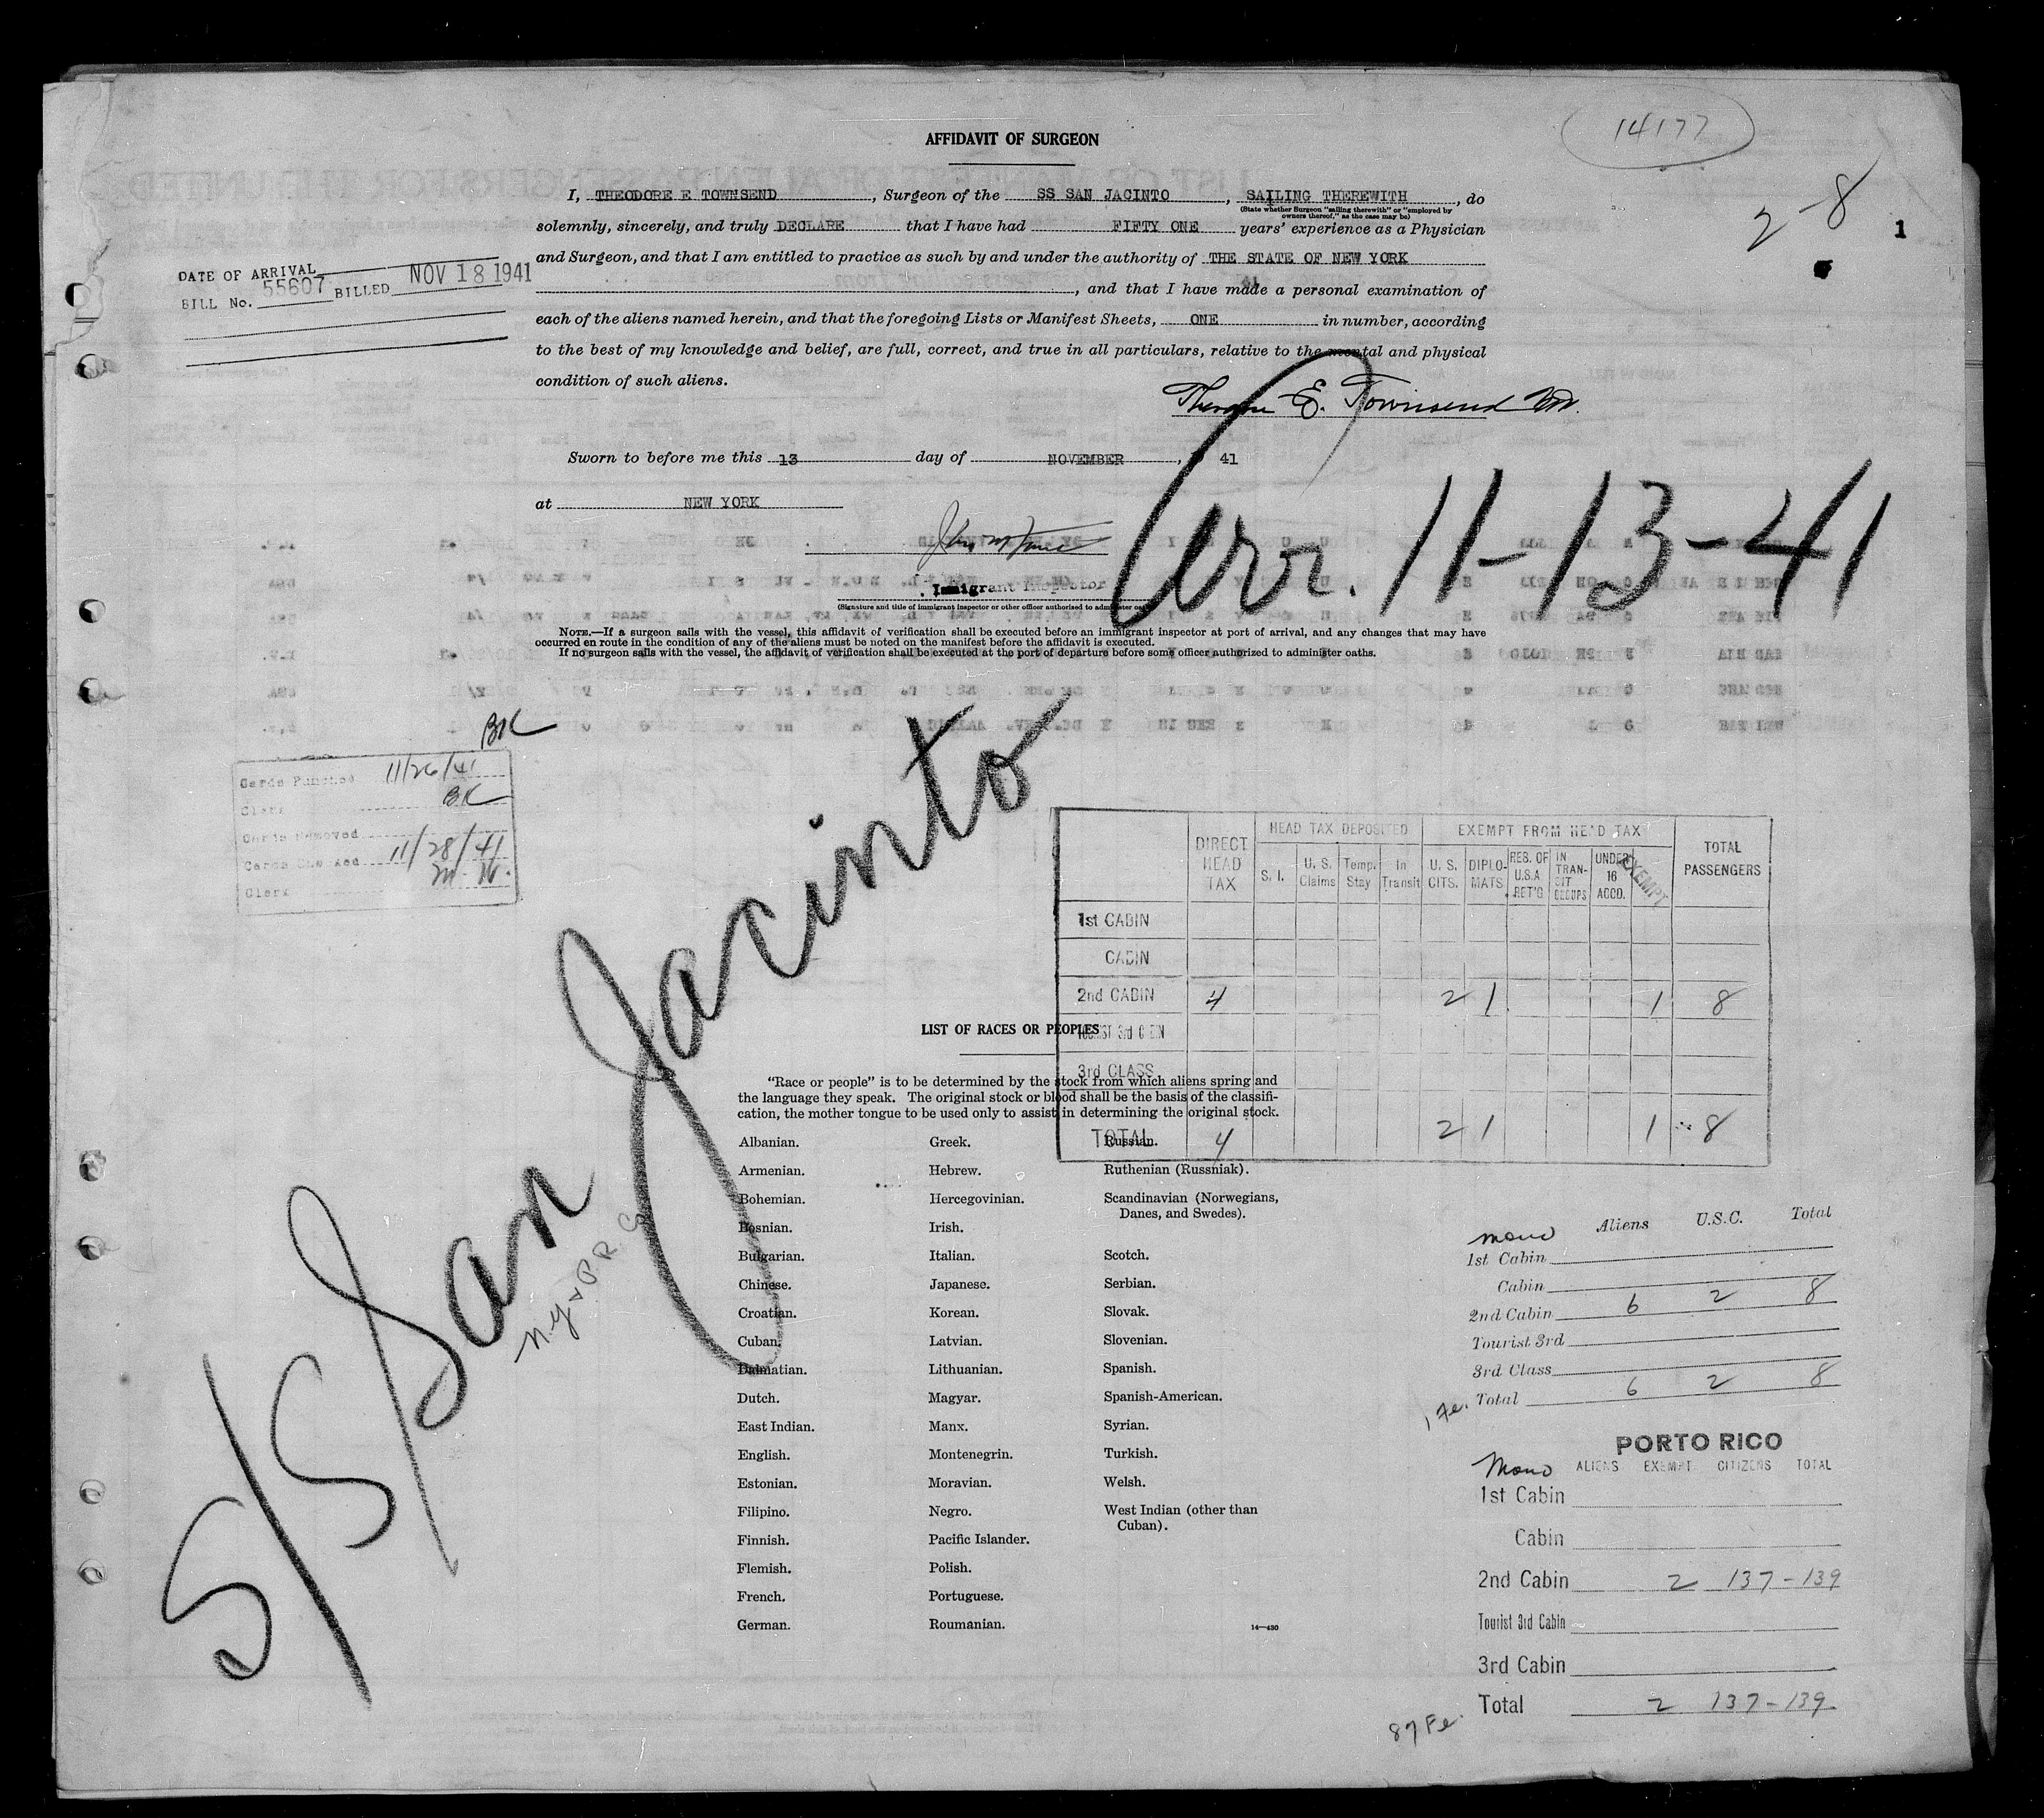 14177
AFFIDAVIT OF SURGEON
2-8
1
I, THEODORE E TOWNSEND, Surgeon of the SS SAN JACINTO, SAILING THEREWITH, do
(State whether Surgeon "sailing therewith" or "employed by owners thereof," as the case may be)
solemnly, sincerely, and truly DECLARE that I have had FIFTY ONE years' experience as a Physician
and Surgeon, and that I am entitled to practice as such by and under the authority of THE STATE OF NEW YORK
, and that I have made a personal examination of
each of the aliens named herein, and that the foregoing Lists or Manifest Sheets, ONE in number, according
to the best of my knowledge and belief, are full, correct, and true in all particulars, relative to the mental and physical
condition of such aliens.
DATE OF ARRIVAL
BILL No. 55607 BILLED NOV 18 1941
Theodore E. Townsend MD.
Sworn to before me this 13 day of NOVEMBER, 41
at NEW YORK
Arr. 11-13-41
Immigrant Inspector
(Signature and title of immigrant inspector or other officer authorized to administer oaths)
NOTE.—If a surgeon sails with the vessel, this affidavit of verification shall be executed before an immigrant inspector at port of arrival, and any changes that may have
occurred en route in the condition of any of the aliens must be noted on the manifest before the affidavit is executed.
If no surgeon sails with the vessel, the affidavit of verification shall be executed at the port of departure before some officer authorized to administer oaths.
BK
Cards Punched 11/26/41
Clerk BK
Cards Removed
Cards Checked 11/28/41
Clerk M.W.
S/S San Jacinto
N.Y & P.R.
DIRECT HEAD TAX
HEAD TAX DEPOSITED
EXEMPT FROM HEAD TAX
TOTAL PASSENGERS
S. I.
U. S. Claims
Temp. Stay
In Transit
U. S. CITS.
DIPLOMATS
RES. OF U.S.A. RET'G
IN TRANSIT GROUPS
UNDER 16 ACCD.
EXEMPT
1st CABIN
CABIN
2nd CABIN 4 2 1 1 8
TOURIST 3rd CABIN
3rd CLASS
TOTAL 4 2 1 1 8
LIST OF RACES OR PEOPLES
"Race or people" is to be determined by the stock from which aliens spring and
the language they speak. The original stock or blood shall be the basis of the classifi-
cation, the mother tongue to be used only to assist in determining the original stock.
Albanian.
Armenian.
Bohemian.
Bosnian.
Bulgarian.
Chinese.
Croatian.
Cuban.
Dalmatian.
Dutch.
East Indian.
English.
Estonian.
Filipino.
Finnish.
Flemish.
French.
German.
Greek.
Hebrew.
Hercegovinian.
Irish.
Italian.
Japanese.
Korean.
Latvian.
Lithuanian.
Magyar.
Manx.
Montenegrin.
Moravian.
Negro.
Pacific Islander.
Polish.
Portuguese.
Roumanian.
Russian.
Ruthenian (Russniak).
Scandinavian (Norwegians,
Danes, and Swedes).
Scotch.
Serbian.
Slovak.
Slovenian.
Spanish.
Spanish-American.
Syrian.
Turkish.
Welsh.
West Indian (other than
Cuban).
14—430
Mono Aliens U.S.C. Total
1st Cabin
Cabin
2nd Cabin 6 2 8
Tourist 3rd
3rd Class
Total 6 2 8
1 Fe.
PORTO RICO
Mono ALIENS EXEMPT CITIZENS TOTAL
1st Cabin
Cabin
2nd Cabin 2 137-139
Tourist 3rd Cabin
3rd Cabin
Total 2 137-139
87 Fe.